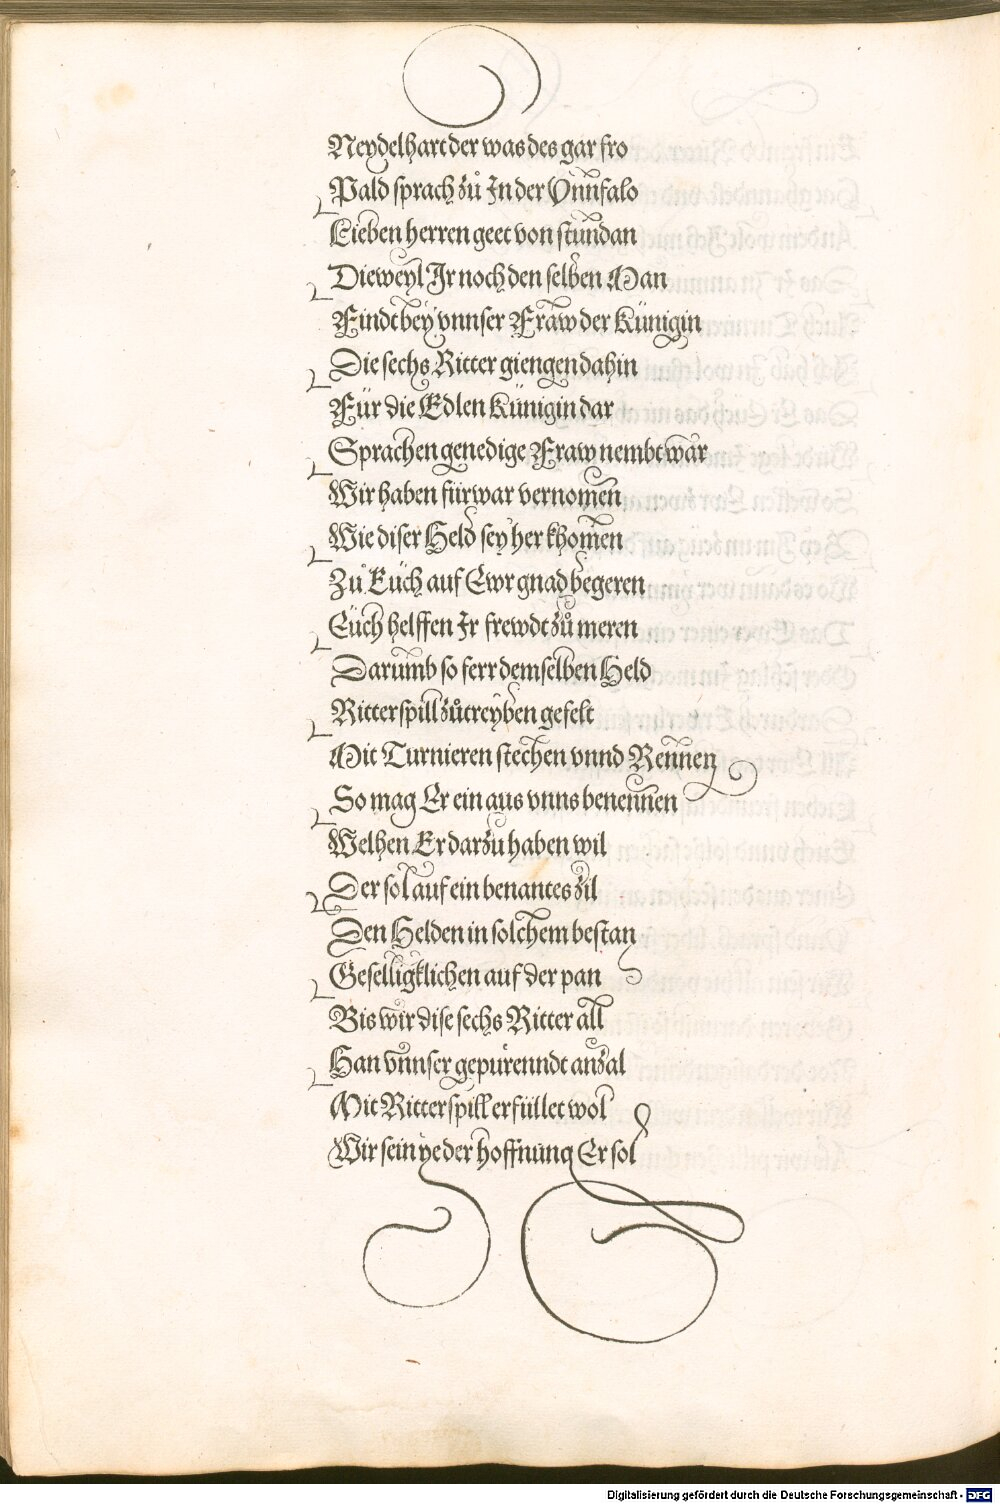 Neydelhart der was des gar fro
Pald sprach zů In der Vnnfalo
Lieben herren geet von stundan
Dieweyl Ir noch den selben Man
Findt bey vnnser Fraw der Künigin
Die sechs Ritter giengen dahin
Für die Edlen Künigin dar
Sprachen genedige Fraw nembt war
Wir haben fürwar vernomen
Wie diser Held sey her khomen
Zu Eüch auf Ewr gnad begeren
Eüch helffen Ir frewdt zů meren
Darumb so ferr demselben Held
Ritterspill zůtreyben gefelt
Mit Turnieren stechen vnnd Rennen
So mag Er ein aus vnns benennen
Welhen Er darzu haben wil
Der sol auf ein benantes zil
Den Helden in solchem bestan
Geselligklichen auf der pan
Bis wir dise sechs Ritter all
Han vnnser gepürenndt anzal
Mit Ritterspill erfüllet wol
Wir sein ye der hoffnung Er sol
Digitalisierung gefördert durch die Deutsche Forschungsgemeinschaft - DFG